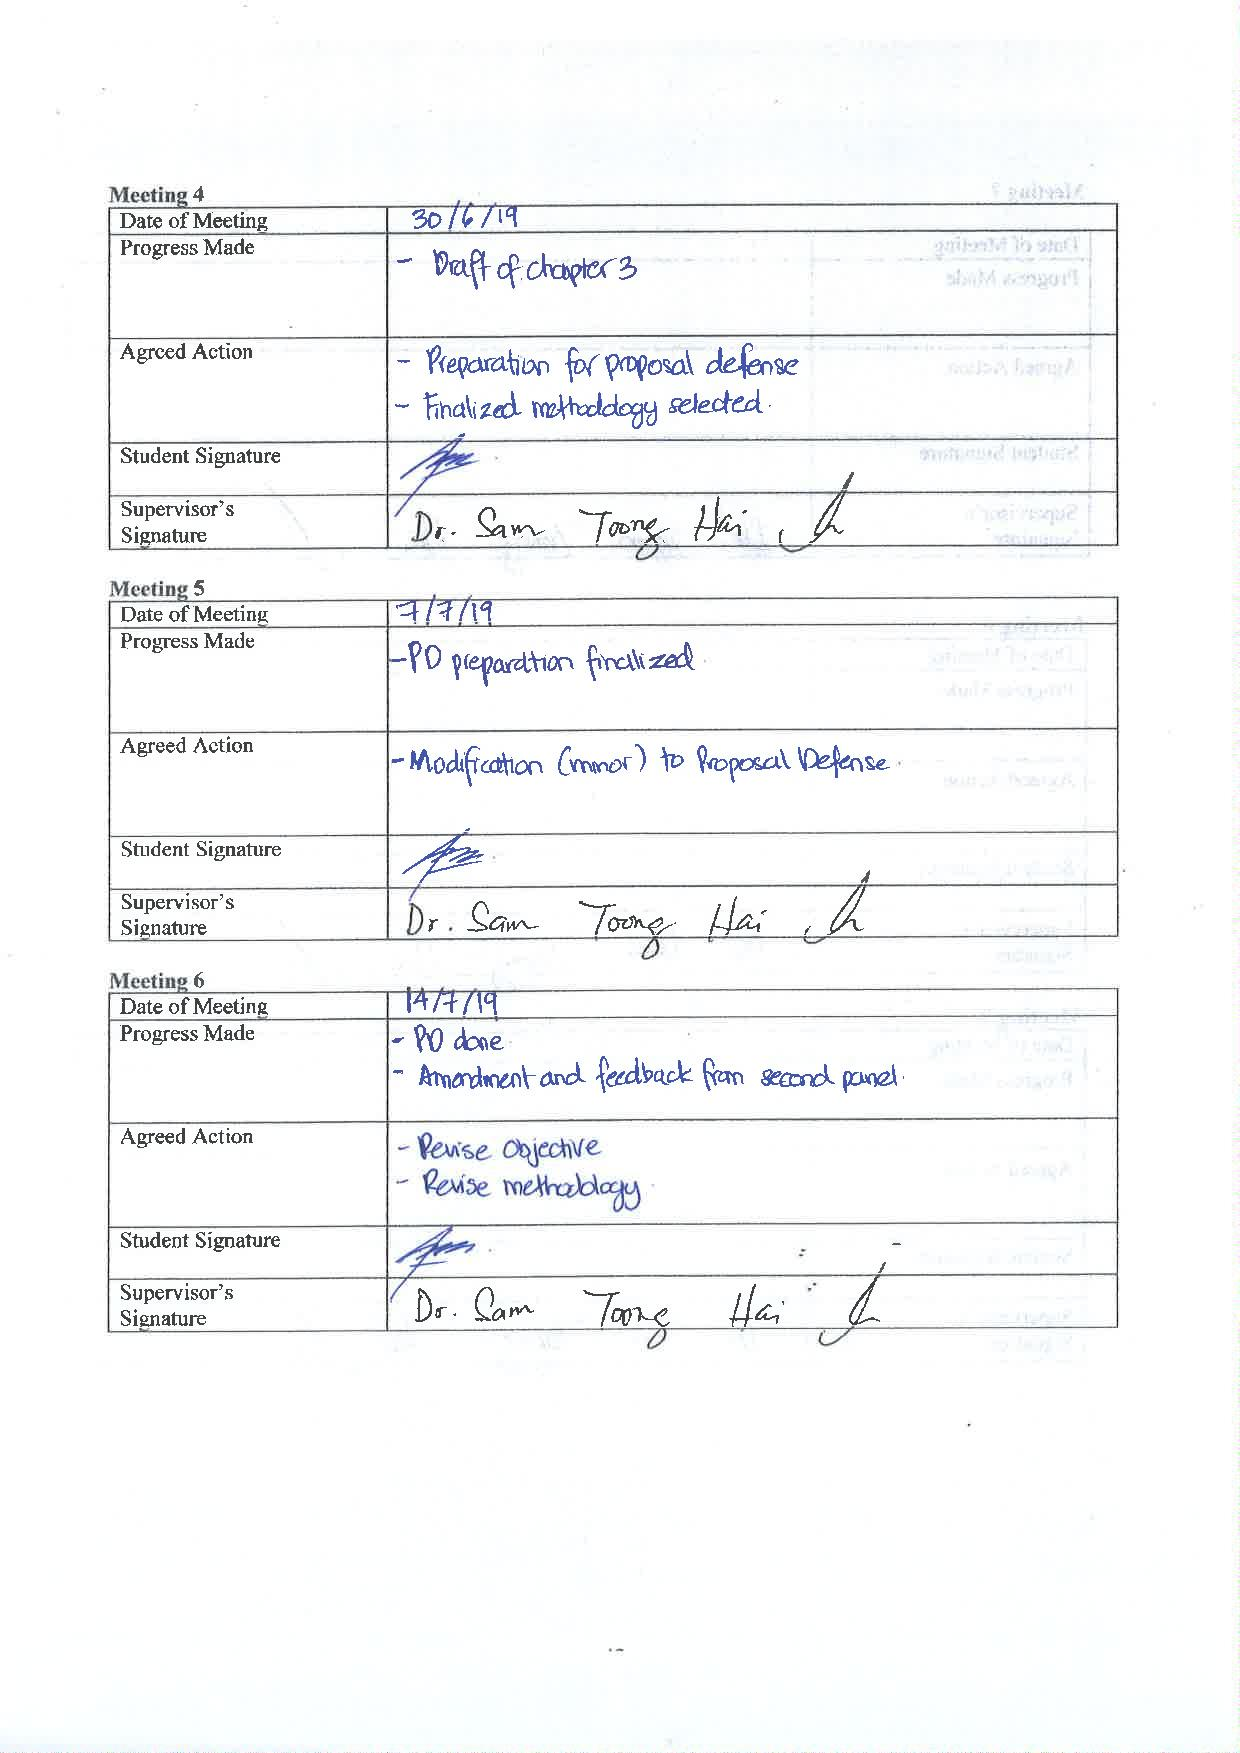 Meeting 4
Date of Meeting 30/6/19
Progress Made - Draft of chapter 3
Agreed Action - Preparation for proposal defense
- Finalized methodology selected.
Student Signature
Supervisor's Dr. Sam Toong Hai
Signature
Meeting 5
Date of Meeting 7/7/19
Progress Made - PD preparation finalized
Agreed Action - Modification (minor) to Proposal Defense.
Student Signature
Supervisor's Dr. Sam Toong Hai
Signature
Meeting 6
Date of Meeting 14/7/19
Progress Made - PD done
- Amendment and feedback from second panel.
Agreed Action - Revise Objective
- Revise methodology
Student Signature
Supervisor's Dr. Sam Toong Hai
Signature